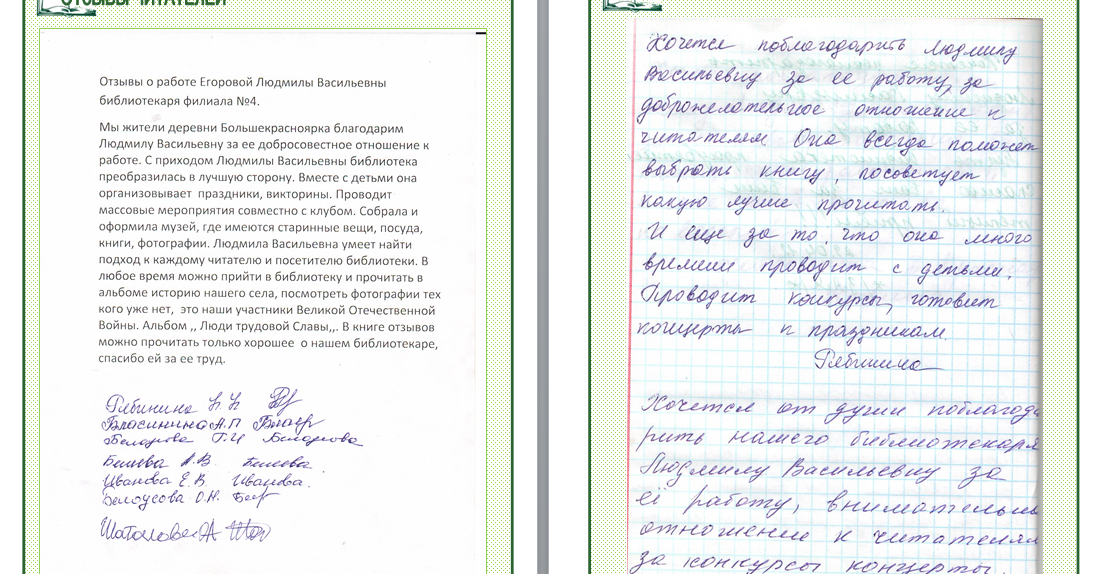 ОТЗЫВЫ ЧИТАТЕЛЕЙ
Отзывы о работе Егоровой Людмилы Васильевны
библиотекаря филиала №4.
Мы жители деревни Большекрасноярка благодарим
Людмилу Васильевну за ее добросовестное отношение к
работе. С приходом Людмилы Васильевны библиотека
преобразилась в лучшую сторону. Вместе с детьми она
организовывает праздники, викторины. Проводит
массовые мероприятия совместно с клубом. Собрала и
оформила музей, где имеются старинные вещи, посуда,
книги, фотографии. Людмила Васильевна умеет найти
подход к каждому читателю и посетителю библиотеки. В
любое время можно прийти в библиотеку и прочитать в
альбоме историю нашего села, посмотреть фотографии тех
кого уже нет, это наши участники Великой Отечественной
Войны. Альбом ,, Люди трудовой Славы,,. В книге отзывов
можно прочитать только хорошее о нашем библиотекаре,
спасибо ей за ее труд.
Рябинина Н. Н
Власинина А.П
Белоусова О.Н.
Иванова Е.В Иванова.
Хочется поблагодарить Людмилу
Васильевну за ее работу, за
доброжелательное отношение к
читателям Она всегда поможет
выбрать книгу, посоветует
какую лучше прочитать.
И еще за то, что она много
времени проводит с детьми.
Проводит конкурсы, готовит
концерты к праздникам.
Рябинина
Хочется от души поблагода
рить нашего библиотекаря
Людмилу Васильевну за
её работу, внимательн
отношение к читателям
за конкурсы концерты.